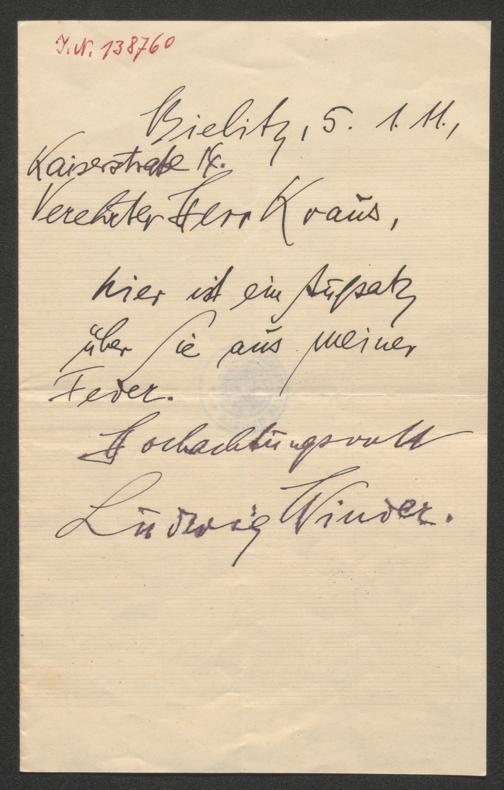 J.N. 138760
Bielitz, 5. 1. 11.,
Kaiserstraße 14.
Verehrter Herr Kraus,
hier ist ein Aufsatz
über Sie aus meiner
Feder.
Hochachtungsvoll
Ludwig Winder.